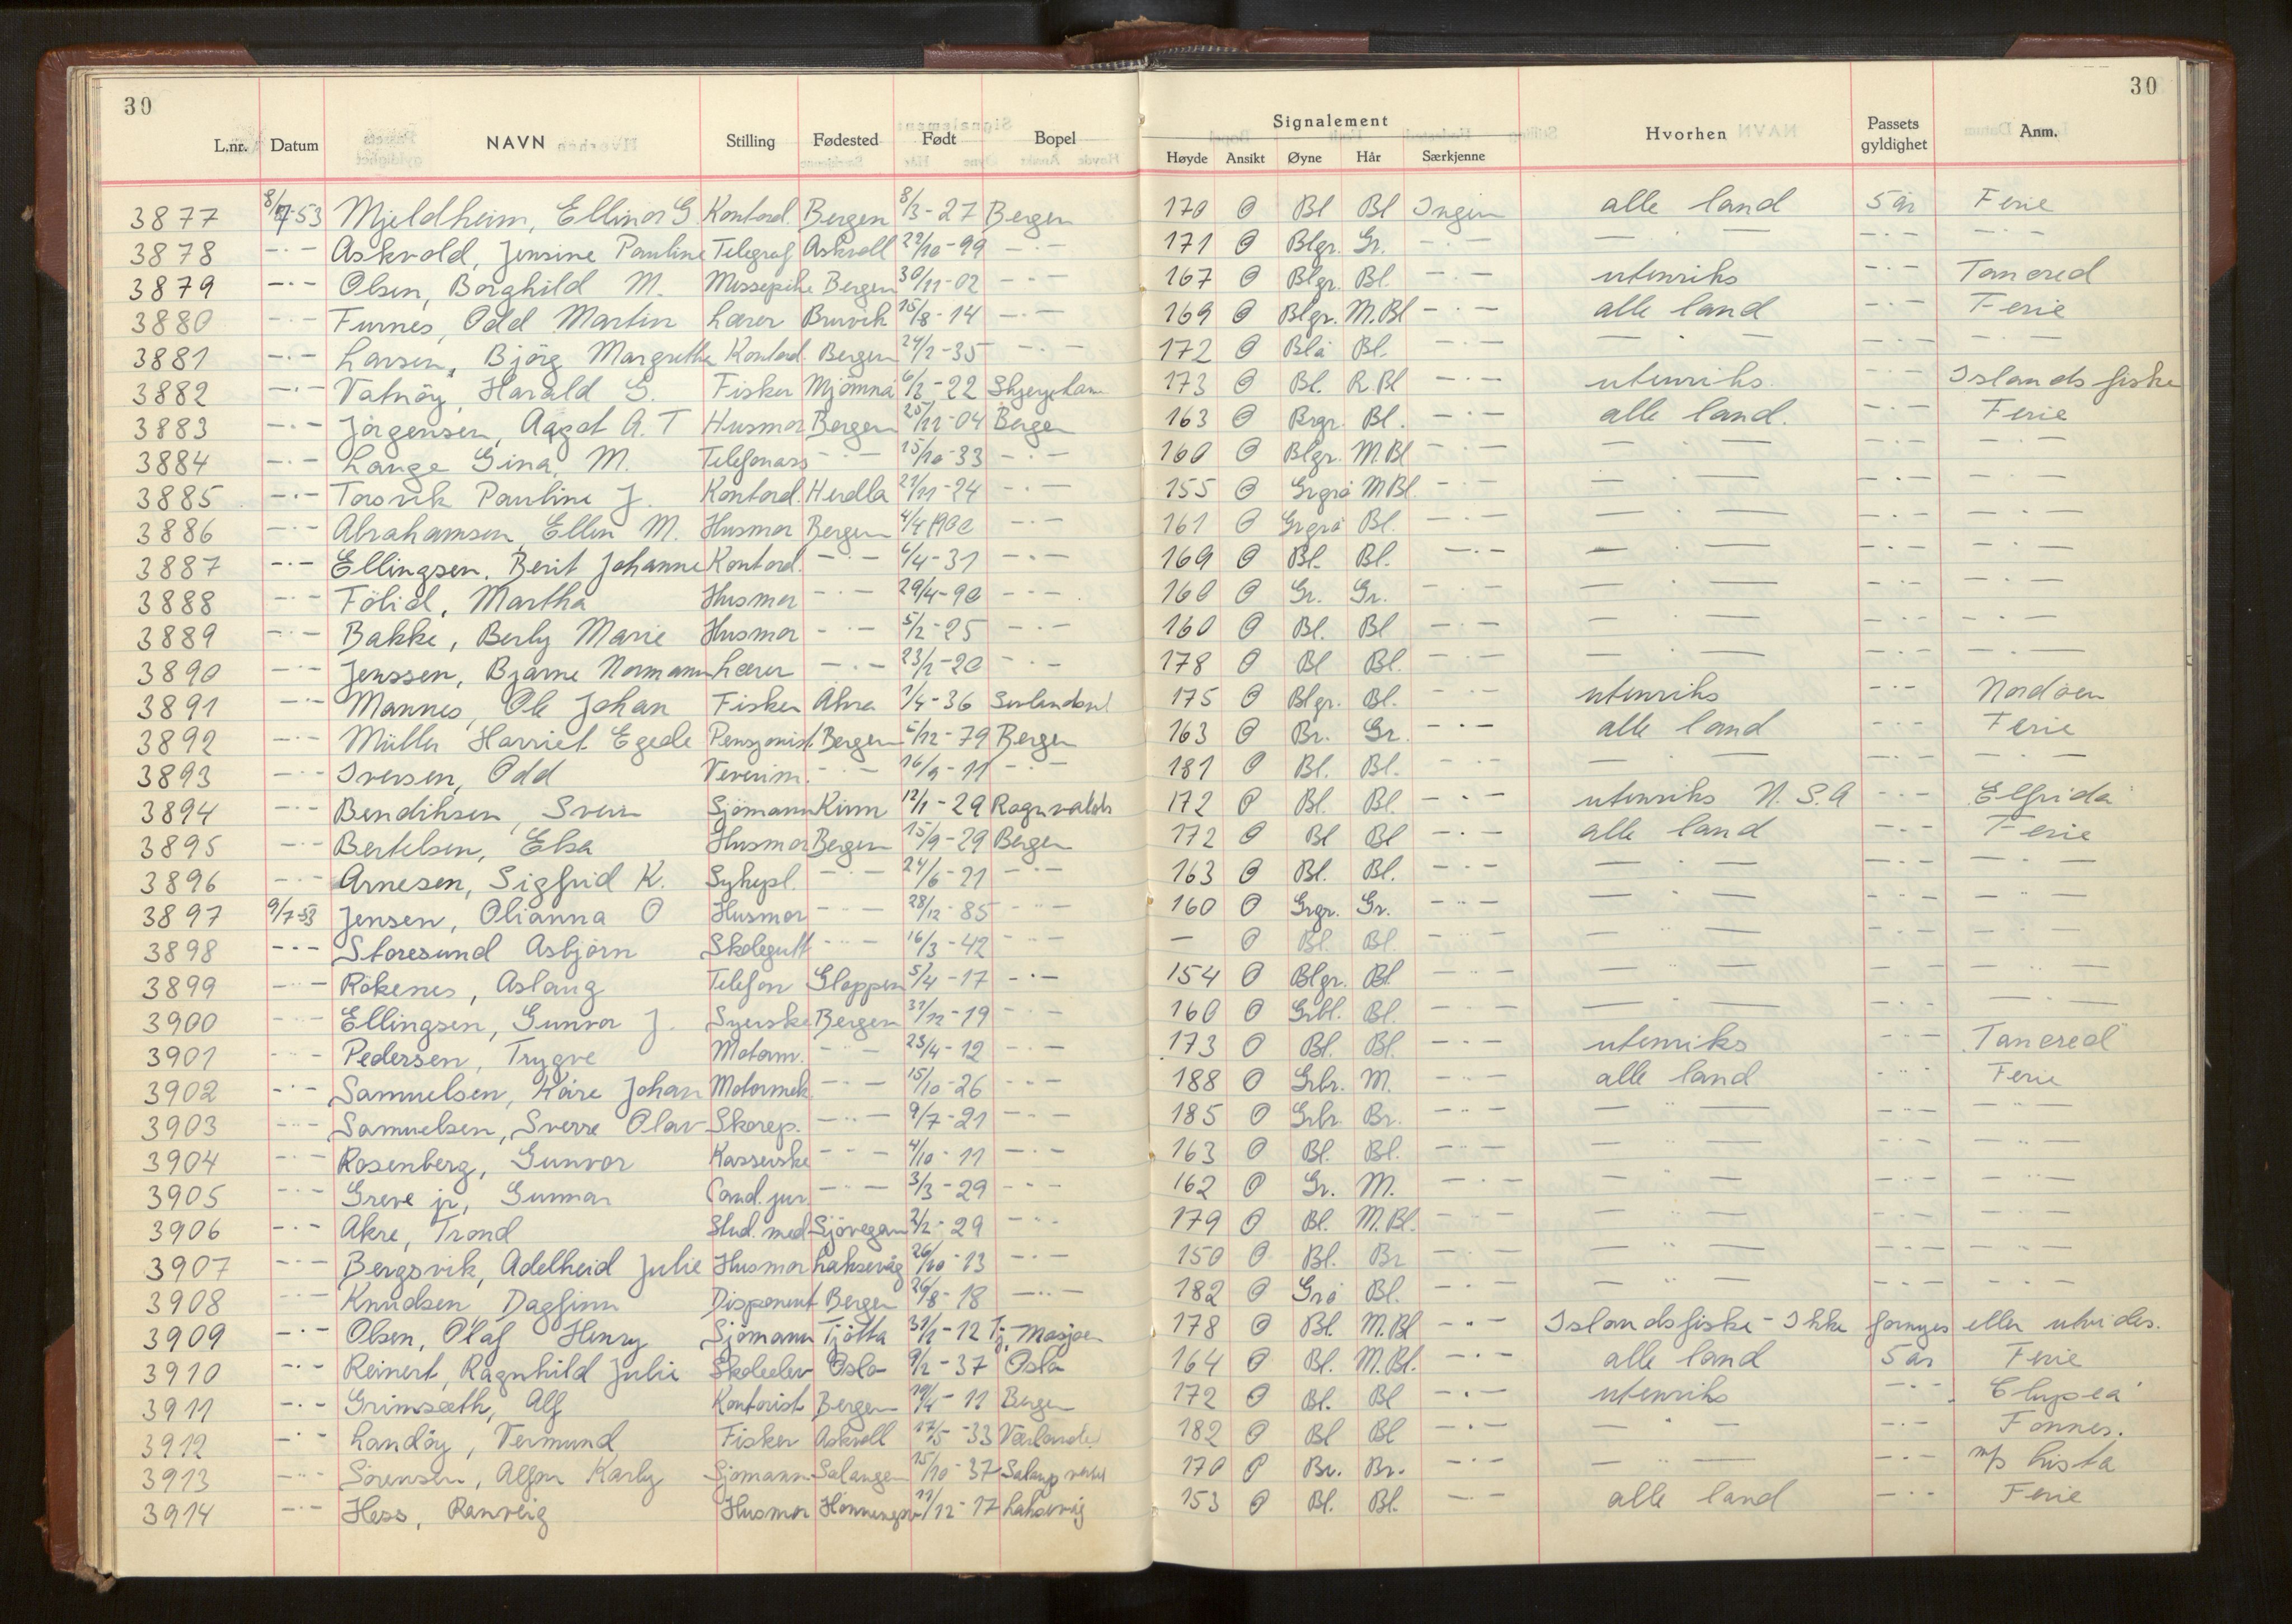 30 30
Signalement
L.nr. Datum NAVN Stilling Fødested Født Bopel Høyde Ansikt Øyne Hår Særkjenne Hvorhen Passets gyldighet Anm.
3877 8/7-53 Mjeldheim, Ellinor G. Kontord. Bergen 8/3-27 Bergen 170 O Bl Bl Ingen alle land 5 år Ferie
3878 -·- Askvold, Jensine Pauline Telegraf Askvoll 22/10-99 -·- 171 O Blgr. Gr. -·- — · — -·- -·-
3879 -·- Olsen, Borghild M. Messepike Bergen 30/11-02 -·- 167 O Blgr. Bl. -·- utenriks -·- Tancred
3880 -·- Furnes, Odd Martin Lærer Bruvik 15/8-14 -·- 169 O Blgr. M.Bl -·- alle land -·- Ferie
3881 -·- Larsen, Bjørg Margrethe Kontord. Bergen 24/2-35 -·- 172 O Blå Bl. -·- — · — -·- -·-
3882 -·- Vatnøy, Harald G. Fisker Mjømna 6/2-22 173 O Bl. R.Bl -·- utenriks -·- Islandsfiske
3883 -·- Jörgensen, Aagot A. T Husmor Bergen 25/12-04 Bergen 163 O Brgr. Bl. -·- alle land. -·- Ferie
3884 -·- Lange Gina M. Telefonass -·- 15/10-33 -·- 160 O Blgr. M.Bl -·- — · — -·- -·-
3885 -·- Torsvik Pauline J. Kontord. Herdla 21/11-24 -·- 155 O Grgrå M.Bl. -·- — · — -·- -·-
3886 -·- Abrahamsen Ellen M. Husmor Bergen 4/4 1900 -·- 161 O Grgrå Bl. -·- — · — -·- -·-
3887 -·- Ellingsen, Berit Johanne Kontord. -·- 6/4-31 -·- 169 O Bl. Bl. -·- — · — -·- -·-
3888 -·- Fölid, Martha Husmor -·- 29/4-90 -·- 160 O Gr. Gr. -·- — · — -·- -·-
3889 -·- Bakke, Berly Marie Husmor -·- 5/2-25 -·- 160 O Bl. Bl -·- — · — -·- -·-
3890 -·- Jenssen, Bjarne Normann Lærer -·- 23/2-20 -·- 178 O Bl Bl. -·- — · — -·- -·-
3891 -·- Mannes, Ole Johan Fisker Akra 1/4-36 175 O Blgr. Bl. -·- utenriks -·- Nordöen
3892 -·- Müller Harriet Egede Pensjonist Bergen 5/12-79 Bergen 163 O Br. Gr. -·- alle land -·- Ferie
3893 -·- Iversen, Odd Veverim. -·- 16/9-11 -·- 181 O Bl. Bl. -·- — · — -·- -·-
3894 -·- Bendiksen, Svein Sjömann Kinn 12/1-29 172 O Bl. Bl. -·- utenriks N.S.A -·- "Elfrida"
3895 -·- Bertelsen, Elsa Husmor Bergen 15/9-29 Bergen 172 O Bl Bl -·- alle land -·- Ferie
3896 -·- Arnesen, Sigfrid K. Sykepl. -·- 24/6-21 -·- 163 O Bl. Bl. -·- — · — -·- -·-
3897 9/7-53 Jensen, Olianna O Husmor -·- 28/12-85 -·- 160 O Grgr. Gr. -·- — · — -·- -·-
3898 -·- Storesund Asbjørn Skolegutt -·- 16/3-42 -·- — O Bl. Bl. -·- — · — -·- -·-
3899 -·- Rökenes, Aslaug Telefon Gloppen 5/4-17 -·- 154 O Blgr. Bl. -·- — · — -·- -·-
3900 -·- Ellingsen, Gunvor J. Syerske Bergen 31/12-19 -·- 160 O Grbl. Bl. -·- — · — -·- -·-
3901 -·- Pedersen, Trygve Motorm. -·- 23/4-12 -·- 173 O Bl. Bl. -·- utenriks -·- "Tancred"
3902 -·- Samuelsen, Kåre Johan Motormek. -·- 15/10-26 -·- 188 O Grbr. M. -·- alle land -·- Ferie
3903 -·- Samuelsen, Sverre Olav Skorep. -·- 9/7-21 -·- 185 O Grbr. Br. -·- — · — -·- -·-
3904 -·- Rosenberg, Gunvor Kasserske -·- 4/10-11 -·- 163 O Bl. Bl. -·- — · — -·- -·-
3905 -·- Greve jr, Gunnar Cand. jur. -·- 3/3-29 -·- 162 O Gr. M. -·- — · — -·- -·-
3906 -·- Akre, Trond Stud. med. Sjøvegan 2/2-29 -·- 179 O Bl. M.Bl. -·- — · — -·- -·-
3907 -·- Bergsvik, Adelheid Julie Husmor Laksevåg 26/10-13 -·- 150 O Bl. Br -·- — · — -·- -·-
3908 -·- Knudsen Dagfinn Disponent Bergen 26/8-18 -·- 182 O Grå Bl. -·- — · — -·- -·-
3909 -·- Olsen, Olaf Henry Sjømann Tjøtta 31/2-12 Mosjøen 178 O Bl. M.Bl -·- Islandsfiske - Ikke fornyes eller utvides.
3910 -·- Reinert, Ragnhild Julie Skoleelev Oslo 9/2-37 Oslo 164 O Bl. M.Bl. -·- alle land 5 år Ferie
3911 -·- Grimsæth, Alf Kontorist Bergen 19/4-11 Bergen 172 O Bl. Bl -·- utenriks -·- "Clypea"
3912 -·- Landøy, Vermund Fisker Askvoll 17/5-33 Værlandet 182 O Bl Bl -·- — · — -·- Fonnes.
3913 -·- Sørensen, Alfon Karby Sjømann Salangen 15/10-37 170 O Br. Br. -·- — · — -·- m/s Lista
3914 -·- Hess, Ranveig Husmor 11/12-17 Laksevåg 153 O Bl. Bl. -·- alle land -·- Ferie